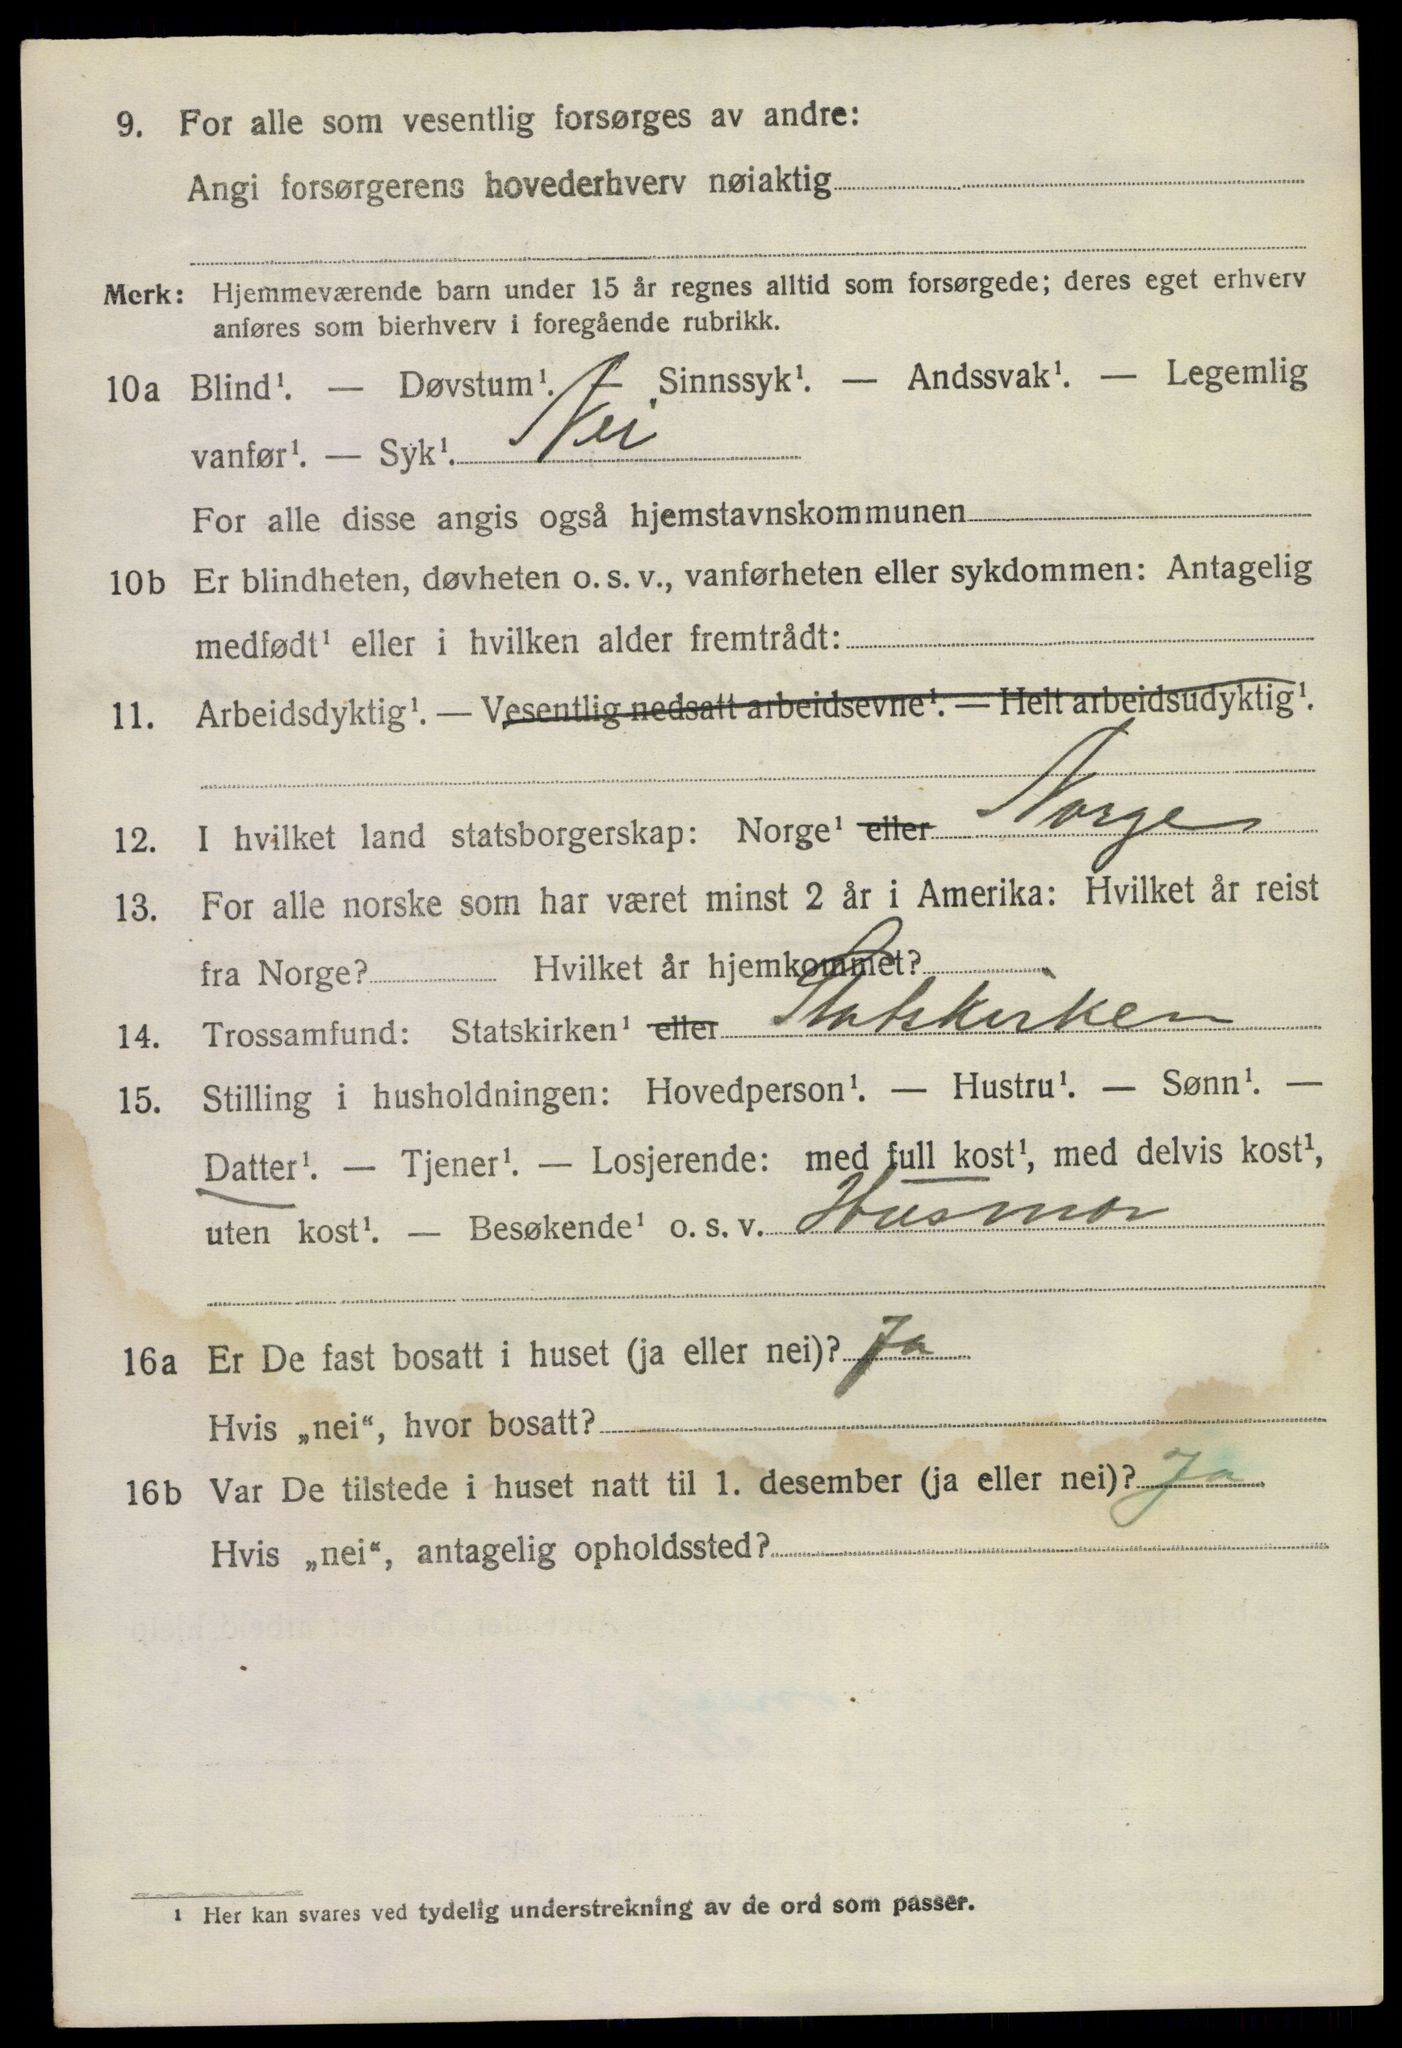 9. For alle som vesentlig forsørges av andre:
Angi forsørgerens hovederhverv nøiaktig
Merk: Hjemmeværende barn under 15 år regnes alltid som forsørgede; deres eget erhverv
anføres som bierhverv i foregående rubrikk.
10a Blind¹. — Døvstum¹. — Sinnssyk¹. — Andssvak¹. — Legemlig
vanfør¹. — Syk¹. Nei
For alle disse angis også hjemstavnskommunen
10b Er blindheten, døvheten o. s. v., vanførheten eller sykdommen: Antagelig
medfødt¹ eller i hvilken alder fremtrådt:
11. Arbeidsdyktig¹. — Vesentlig nedsatt arbeidsevne¹. — Helt arbeidsudyktig¹.
12. I hvilket land statsborgerskap: Norge¹ eller Norge
13. For alle norske som har været minst 2 år i Amerika: Hvilket år reist
fra Norge? Hvilket år hjemkommet?
14. Trossamfund: Statskirken¹ eller Statskirken
15. Stilling i husholdningen: Hovedperson¹. — Hustru¹. — Sønn¹. —
Datter¹. — Tjener¹. — Losjerende: med full kost¹, med delvis kost¹,
uten kost¹. — Besøkende¹ o. s. v. Husmor
16a Er De fast bosatt i huset (ja eller nei)? Ja
Hvis „nei“, hvor bosatt?
16b Var De tilstede i huset natt til 1. desember (ja eller nei)? Ja
Hvis „nei“, antagelig opholdssted?
¹ Her kan svares ved tydelig understrekning av de ord som passer.